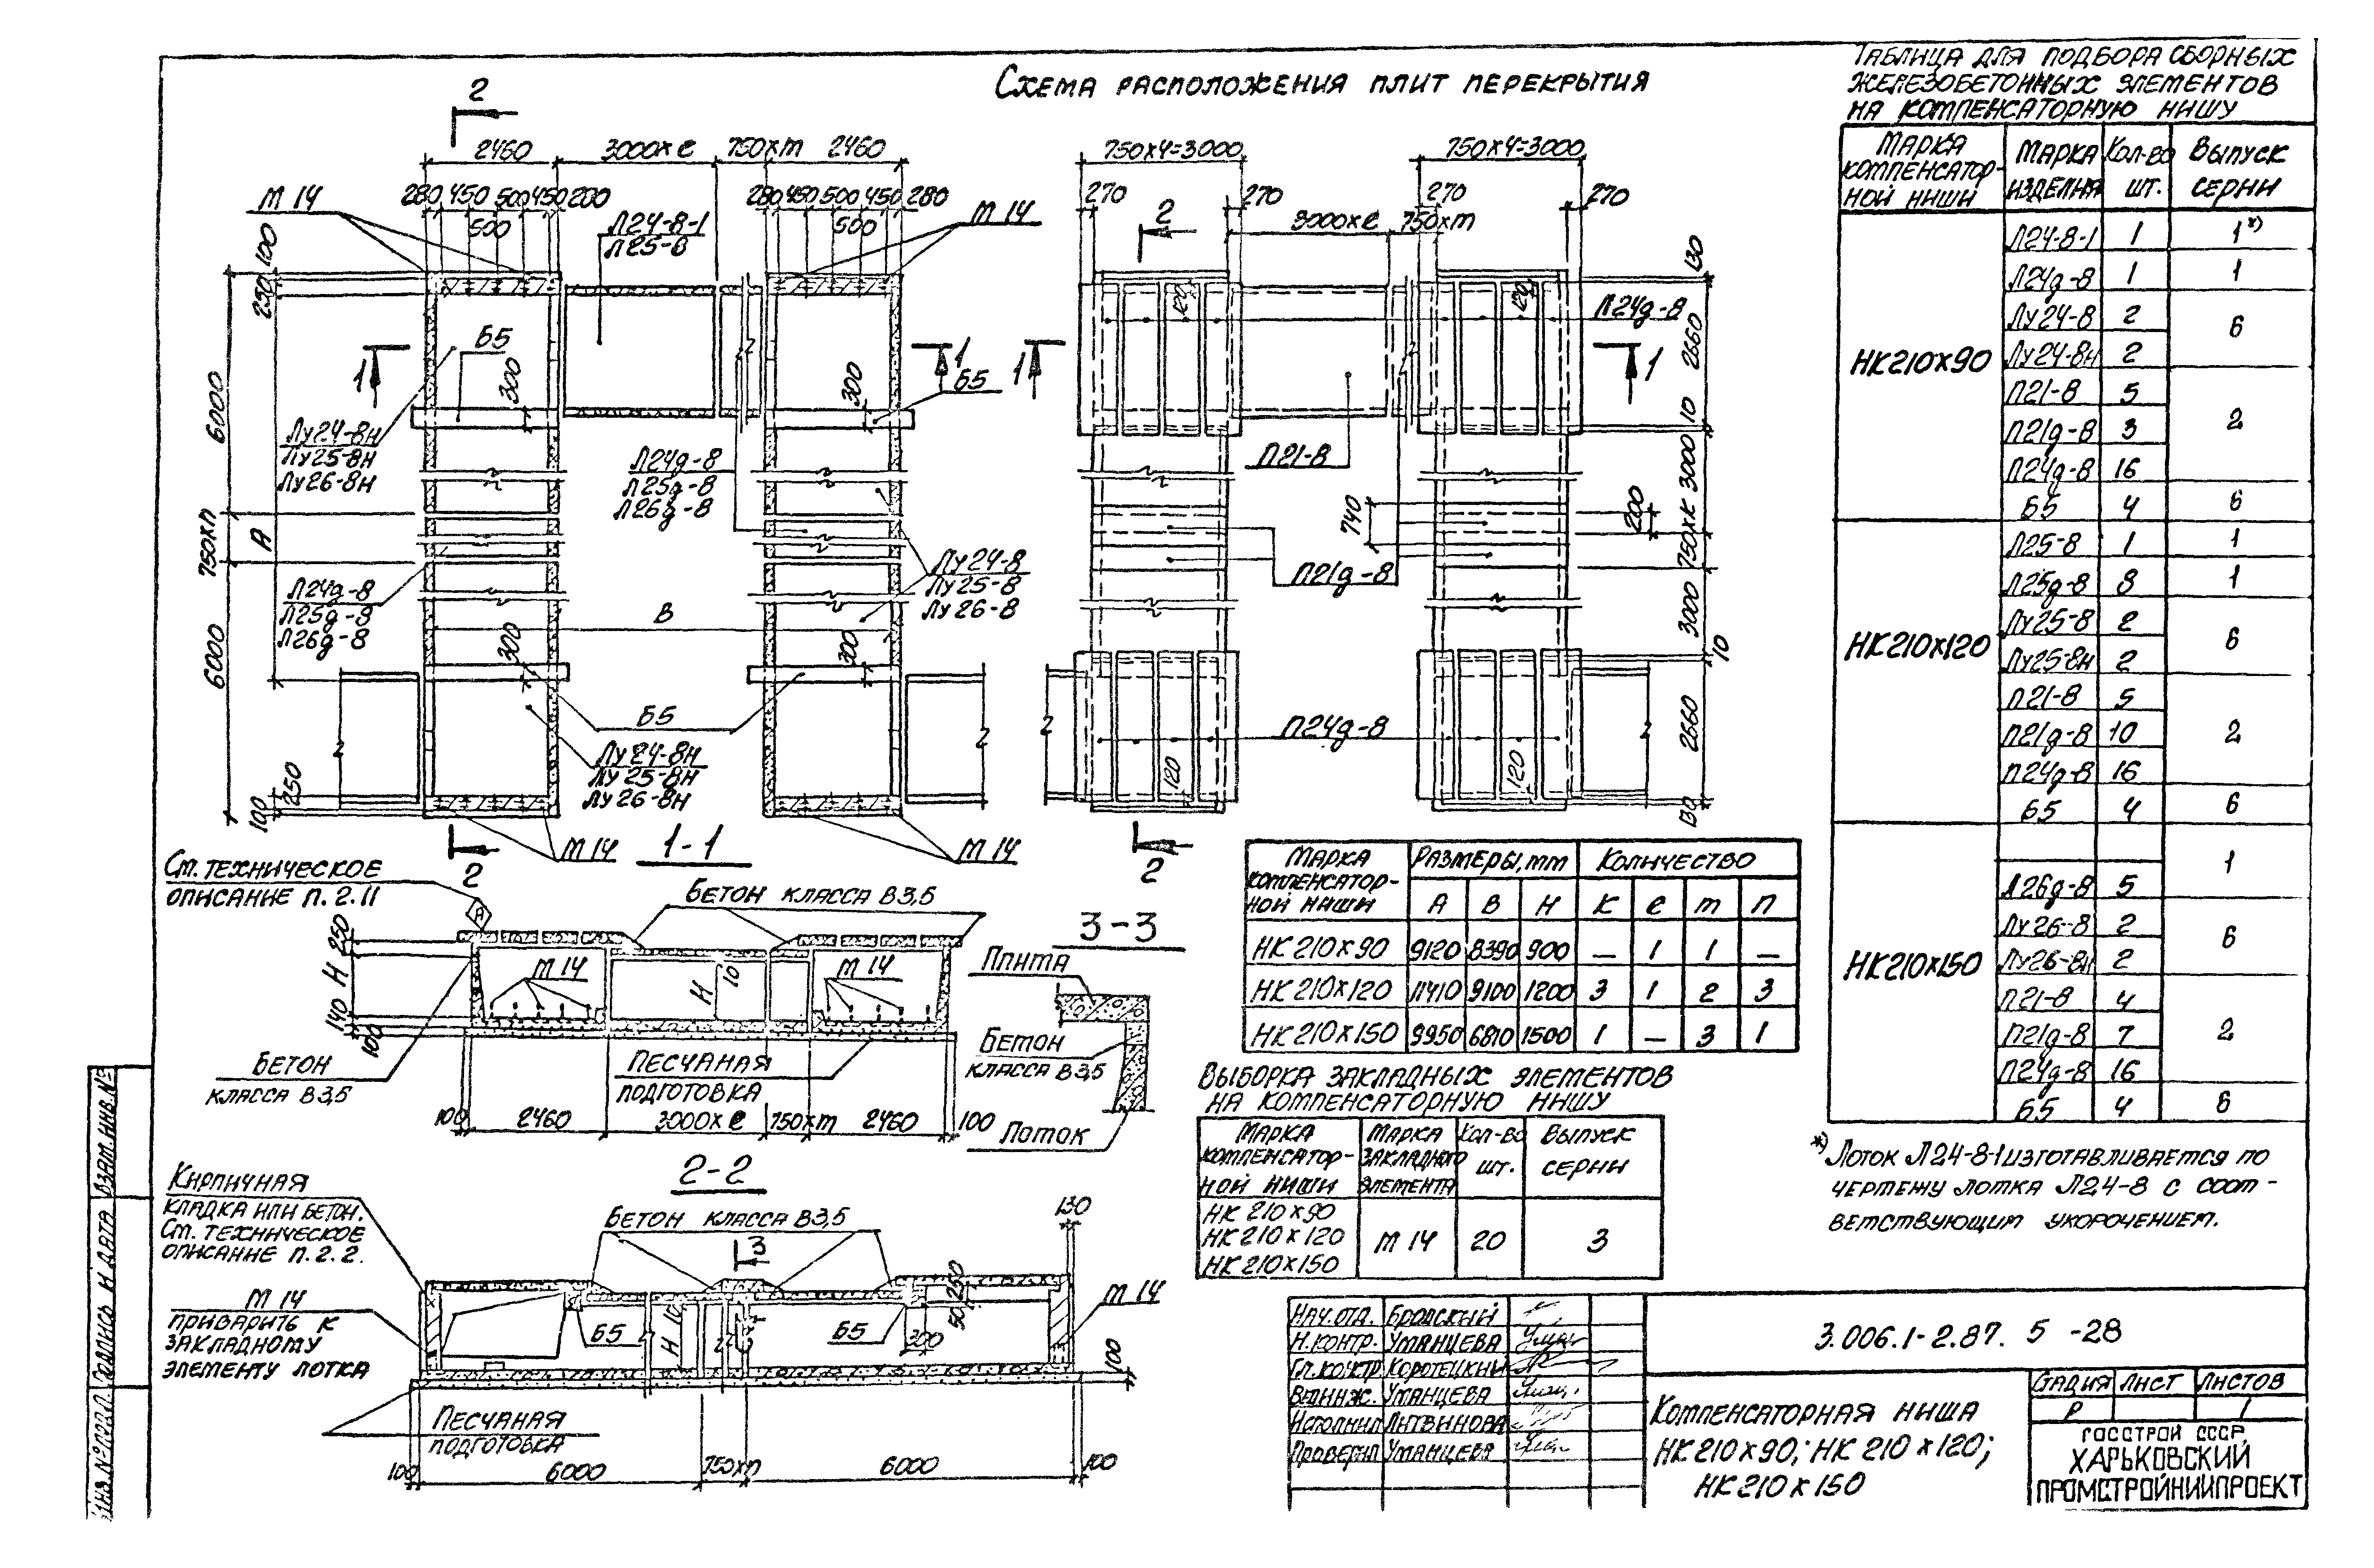 Схема расположения плит перекрытия
Таблица для подбора сборных
железобетонных элементов
на компенсаторную нишу
Марка компенсатор-ной ниши | Марка изделия | Кол-во шт. | Выпуск серии
НК210х90
Л24-8-1 1 1*)
Л24д-8 1 1
Лу24-8 2 6
Лу24-8н 2
П21-8 5
П21д-8 3 2
П24д-8 16
Б5 4 6
НК210х120
Л25-8 1 1
Л25д-8 8 1
Лу25-8 2 6
Лу25-8н 2
П21-8 5
П21д-8 10 2
П24д-8 16
Б5 4 6
НК210х150
1
Л26д-8 5
Лу26-8 2 6
Лу26-8н 2
П21-8 4
П21д-8 7 2
П24д-8 16
Б5 4 6
*) Лоток Л24-8-1 изготавливается по
чертежу лотка Л24-8 с соот-
ветствующим укорочением.
2
2460 3000хℓ 750хm 2460
280 450 500 450 280
280 450 500 450 280
500 500
М 14
М 14
Л24-8-1
Л25-8
100
250
6000
750хп
6000
А
В
250
100
1
1
Б5
Б5
300
300
Лу24-8н
Лу25-8н
Лу26-8н
Л24д-8
Л25д-8
Л26д-8
Л24д-8
Л25д-8
Л26д-8
Лу24-8
Лу25-8
Лу26-8
300
300
Б5
Лу24-8н
Лу25-8н
Лу26-8н
2
2
М 14
М 14
2
750х4=3000
750х4=3000
270 270 270 270
2
3000хℓ 750хm
120
120
Л24д-8
1
1
П21-8
740
200
П21д-8
П24д-8
120
120
2
2
2
130
2660
10
3000
750хК
3000
10
2660
130
1-1
См. техническое
описание п. 2.11
А
Бетон класса В3,5
250
Н
140
100
М 14
Н
10
М 14
Бетон
класса В3,5
Песчаная
подготовка
100 2460 3000хℓ 750хm 2460 100
3-3
Плита
Бетон
класса В3,5
Лоток
2-2
Кирпичная
кладка или бетон.
См. техническое
описание п. 2.2.
М 14
приварить к
закладному
элементу лотка
Бетон класса В3,5
3
130
Б5
Н
10
Б5
300
50
250
М 14
100
Песчаная
подготовка
100 6000 750хп 6000 100
Марка компенсатор-ной ниши | Размеры, мм | Количество
А В Н К ℓ m п
НК 210х90 9120 8390 900 — 1 1 —
НК 210х120 11410 9100 1200 3 1 2 3
НК 210х150 9950 6810 1500 1 — 3 1
Выборка закладных элементов
на компенсаторную нишу
Марка компенсатор-ной ниши | Марка закладного элемента | Кол-во шт. | Выпуск серии
НК 210х90
НК 210х120
НК 210х150
М 14 20 3
Нач.отд. Бродский
Н.контр. Уманцева
Гл.констр. Коротецкий
Вед.инж. Уманцева
Исполнил Литвинова
Проверил Уманцева
3.006.1-2.87. 5 -28
Компенсаторная ниша
НК 210х90; НК 210х120;
НК 210х150
Стадия Лист Листов
Р 1
Госстрой СССР
ХАРЬКОВСКИЙ
ПРОМСТРОЙНИИПРОЕКТ
Инв.№ подл. Подпись и дата Взам.инв.№